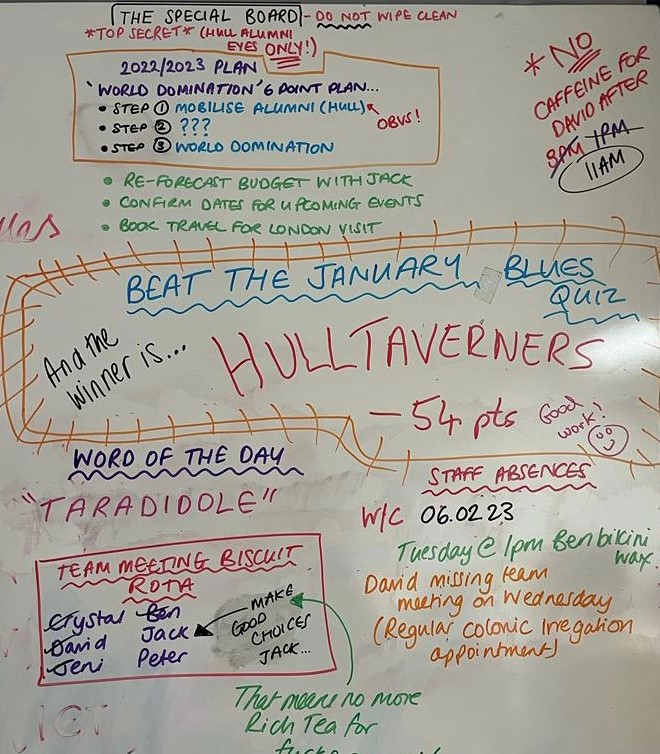 THE SPECIAL BOARD - DO NOT WIPE CLEAN
*TOP SECRET* (HULL ALUMNI
EYES ONLY!)
2022/2023 PLAN
'WORLD DOMINATION' 6 POINT PLAN...
• STEP ① MOBILISE ALUMNI (HULL)
OBVS!
• STEP ② ???
• STEP ③ WORLD DOMINATION
* NO
CAFFEINE FOR
DAVID AFTER
3PM 1PM
11AM
• RE-FORECAST BUDGET WITH JACK
• CONFIRM DATES FOR UPCOMING EVENTS
• BOOK TRAVEL FOR LONDON VISIT
BEAT THE JANUARY BLUES
QUIZ
And the
winner is...
HULLTAVERNERS
- 54 pts
Good
work!
WORD OF THE DAY
"TARADIDOLE"
STAFF ABSENCES
W/C 06.02.23
Tuesday @ 1pm Ben bikini
wax.
David missing team
meeting on Wednesday
(Regular colonic Irregation
appointment)
TEAM MEETING BISCUIT
ROTA
Crystal Ben
David Jack
Jeni Peter
MAKE
GOOD
CHOICES
JACK...
That means no more
Rich Tea for